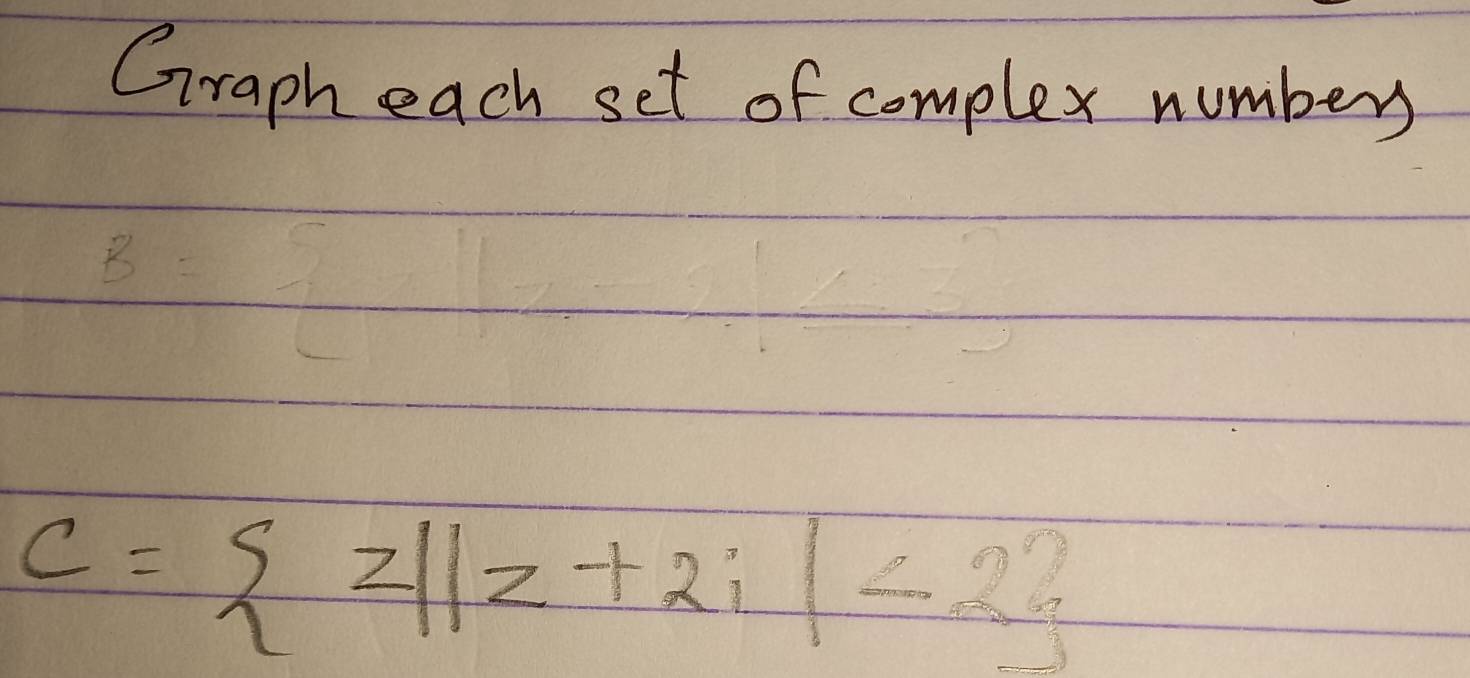 Graph each set of complex numbers
B = { z || z - 2 | ≤ 3 }
C = { z || z + 2i | < 2 }